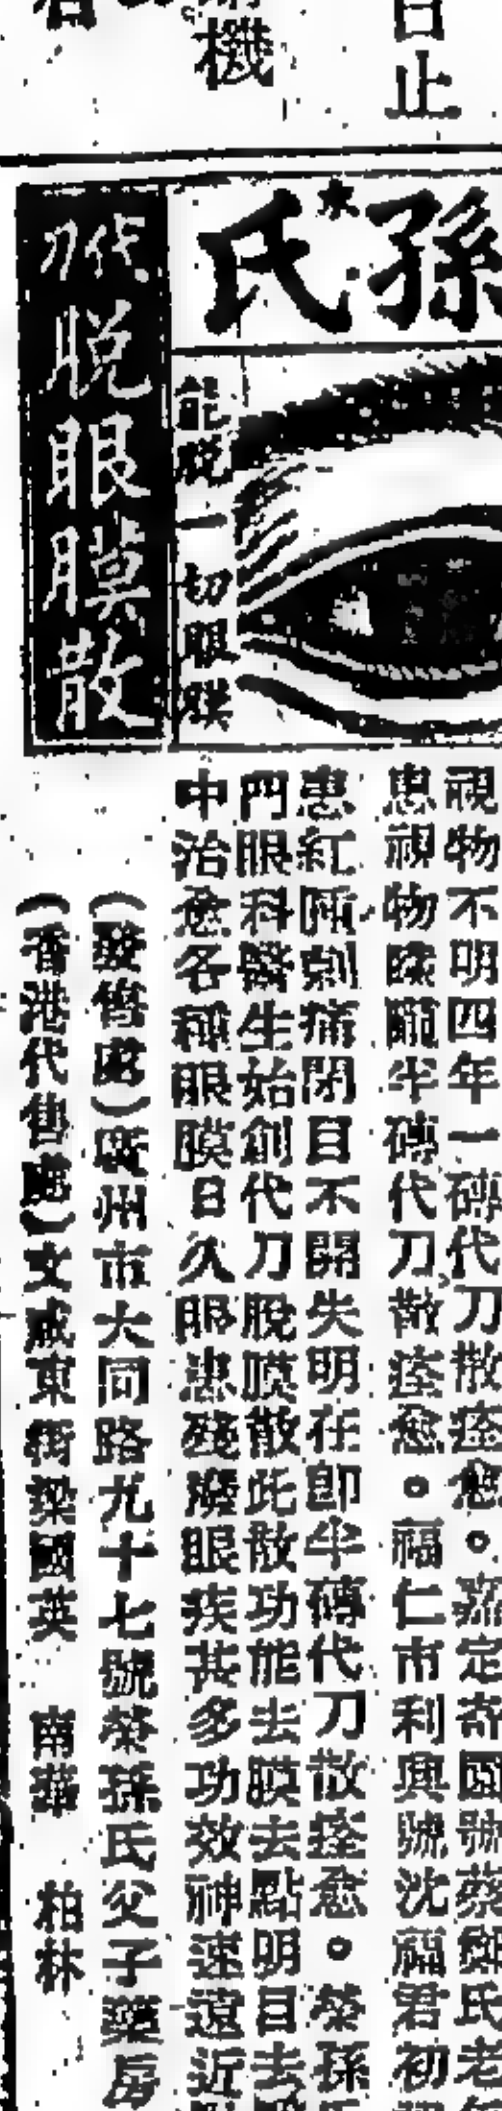 日止
機
孫氏
代刀
脫眼膜散
能脫一切眼膜
視物不明四年一磚代刀散痊愈。嘉定奇圓號蔡鄭氏老
患視物矇矓半磚代刀散痊愈。福仁市利興號沈福君初
患紅腫刺痛閉目不開失明在即半磚代刀散痊愈。榮孫
門眼科醫生始創代刀脫膜散此散功能去膜去點明目去
中治愈各種眼膜日久眼患殘廢眼疾甚多功效神速遠近
(發售處)廣州市大同路九十七號榮孫氏父子藥房
(香港代售處)文咸東街梁國英 南華 柏林